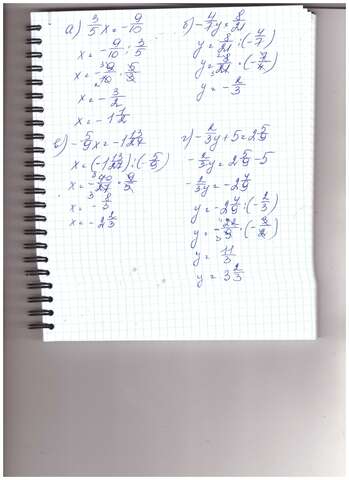 а) 3/5 x = -9/10
x = -9/10 : 3/5
x = -9/10 · 5/3
x = -3/2
x = -1 1/2
б) -4/7 y = 8/21
y = 8/21 : (-4/7)
y = 8/21 · (-7/4)
y = -2/3
в) -5/9 x = -1 13/27
x = (-1 13/27) : (-5/9)
x = -40/27 · 9/5
x = -8/3
x = -2 2/3
г) -2/3 y + 5 = 2 5/9
-2/3 y = 2 5/9 - 5
-2/3 y = -2 4/9
y = -2 4/9 : (-2/3)
y = -22/9 · (-3/2)
y = 11/3
y = 3 2/3